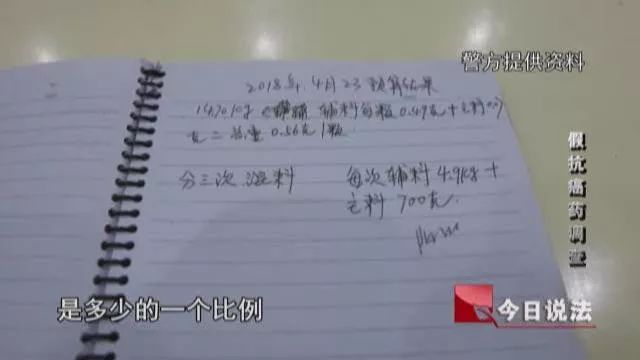 警方提供资料
2018年4月23预算结果
14.70kg 辅料每颗0.49克+主料0.07
克=总重0.56克/颗
分三次混料 每次辅料4.9kg+
主料700克.
假抗癌药调查
是多少的一个比例
今日说法